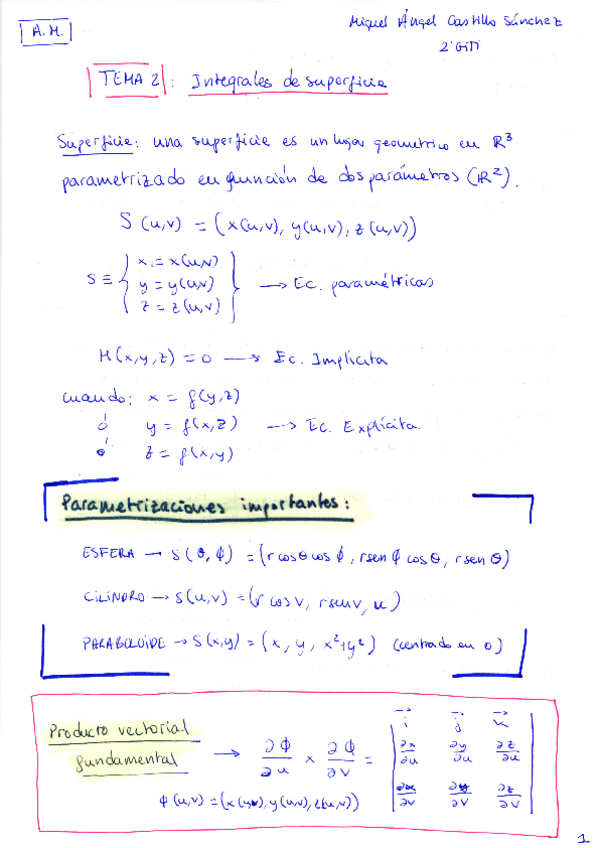 A.M.
Miguel Ángel Castillo Sánchez
2º GITI
TEMA 2: Integrales de superficie
Superficie: una superficie es un lugar geometrico en ℝ³
parametrizado en función de dos parámetros (ℝ²).
S(u,v) = (x(u,v), y(u,v), z(u,v))
S ≡ { x = x(u,v)
y = y(u,v)
z = z(u,v) } → Ec. paramétricas
H(x,y,z) = 0 → Ec. Implícita
cuando: x = f(y,z)
ó y = f(x,z) → Ec. Explícita.
ó z = f(x,y)
Parametrizaciones importantes:
ESFERA → S(θ, ϕ) = (r cosθ cos ϕ, r sen ϕ cos θ, r sen θ)
CILINDRO → S(u,v) = (r cos v, r sen v, u)
PARABOLOIDE → S(x,y) = (x, y, x²+y²) (centrado en 0)
Producto vectorial
fundamental → ∂ϕ/∂u × ∂ϕ/∂v = | i⃗ j⃗ k⃗ |
| ∂x/∂u ∂y/∂u ∂z/∂u |
| ∂x/∂v ∂y/∂v ∂z/∂v |
ϕ(u,v) = (x(u,v), y(u,v), z(u,v))
1